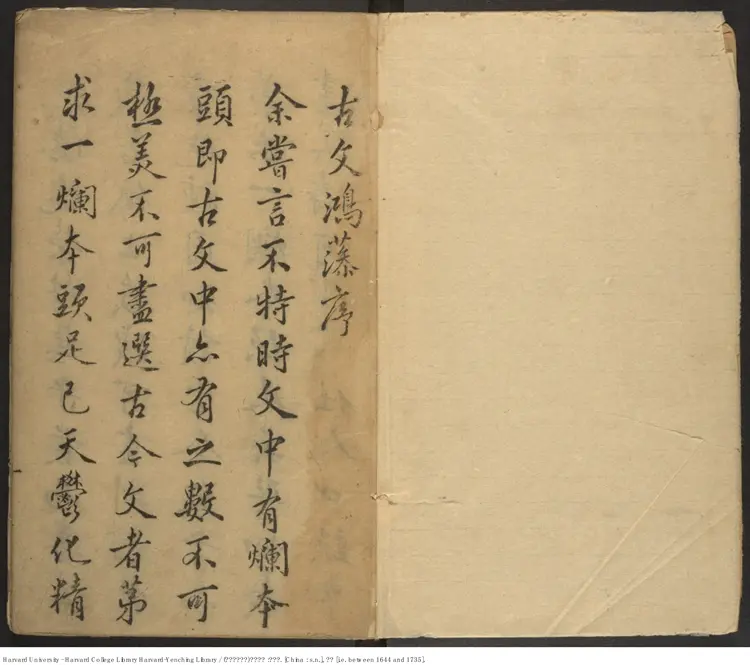 古文鴻藻序
余嘗言不特時文中有爛本
頭即古文中亦有之數不可
極美不可盡選古今文者第
求一爛本頭足已天鬱化精
Harvard University - Harvard College Library Harvard-Yenching Library / (??????)???? :???. [China : s.n.], ?? [i.e. between 1644 and 1735].